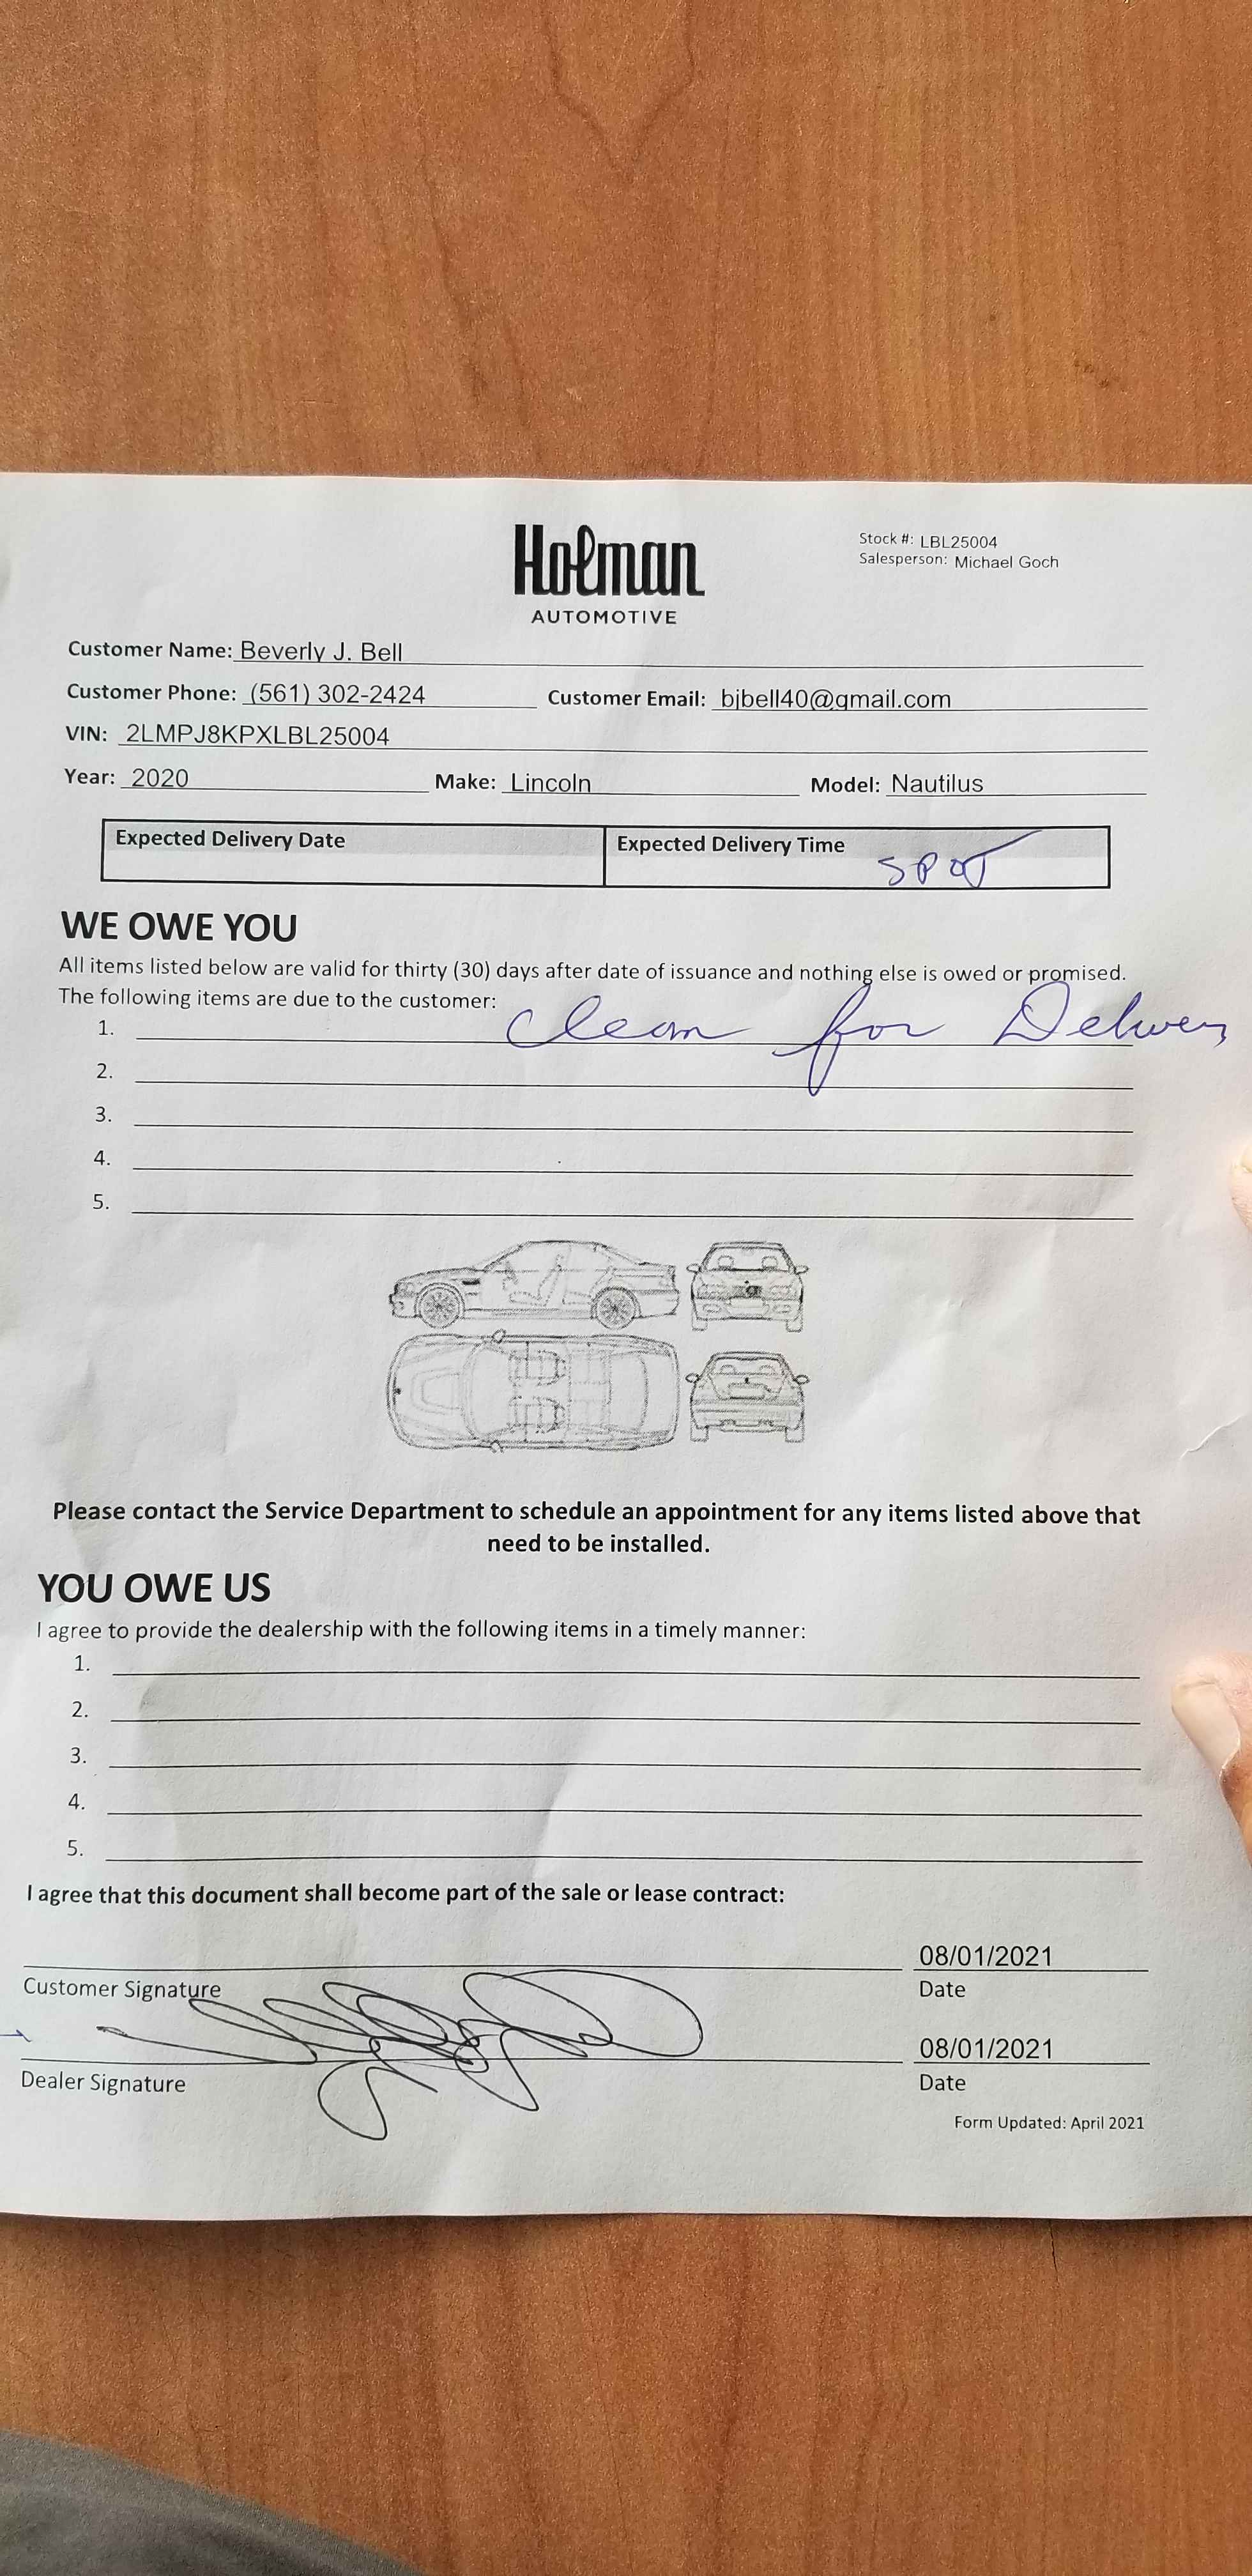 Holman
AUTOMOTIVE
Stock #: LBL25004
Salesperson: Michael Goch
Customer Name: Beverly J. Bell
Customer Phone: (561) 302-2424 Customer Email: bjbell40@gmail.com
VIN: 2LMPJ8KPXLBL25004
Year: 2020 Make: Lincoln Model: Nautilus
Expected Delivery Date Expected Delivery Time SPOT
WE OWE YOU
All items listed below are valid for thirty (30) days after date of issuance and nothing else is owed or promised.
The following items are due to the customer:
1. Clean for Delivery
2.
3.
4.
5.
Please contact the Service Department to schedule an appointment for any items listed above that
need to be installed.
YOU OWE US
I agree to provide the dealership with the following items in a timely manner:
1.
2.
3.
4.
5.
I agree that this document shall become part of the sale or lease contract:
08/01/2021
Customer Signature Date
08/01/2021
Dealer Signature Date
Form Updated: April 2021